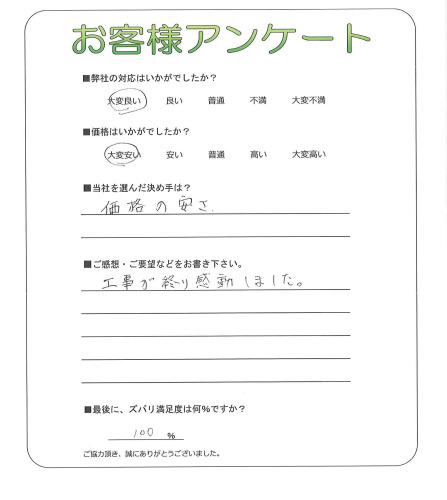 お客様アンケート
■弊社の対応はいかがでしたか？
大変良い 良い 普通 不満 大変不満
■価格はいかがでしたか？
大変安い 安い 普通 高い 大変高い
■当社を選んだ決め手は？
価格の安さ.
■ご感想・ご要望などをお書き下さい。
工事が終り感動しました。
■最後に、ズバリ満足度は何%ですか？
100 %
ご協力頂き、誠にありがとうございました。